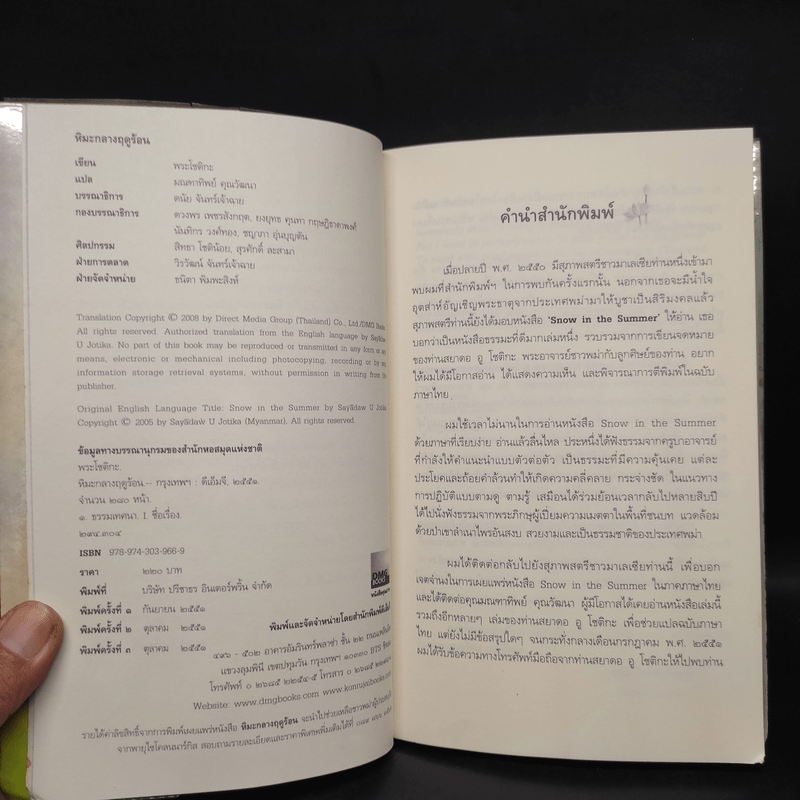 หิมะกลางฤดูร้อน
เขียน พระโชติกะ
แปล มณฑาทิพย์ คุณวัฒนา
บรรณาธิการ ดนัย จันทร์เจ้าฉาย
กองบรรณาธิการ ดวงพร เพชรสังกฤต, ยงยุทธ คุนทา กฤษฎิธาดาพงศ์
นันทิกร วงศ์ทอง, ชญาภา อุ่นบุญตัน
ศิลปกรรม สิทธา โชติน้อย, สุรศักดิ์ ละสามา
ฝ่ายการตลาด วิรวัฒน์ จันทร์เจ้าฉาย
ฝ่ายจัดจำหน่าย ชนิตา พิมพะสิงห์
Translation Copyright © 2008 by Direct Media Group (Thailand) Co., Ltd./DMG Books
All rights reserved. Authorized translation from the English language by Sayādaw
U Jotika. No part of this book may be reproduced or transmitted in any form or
means, electronic or mechanical including photocopying, recording or by
information storage retrieval systems, without permission in writing from the
publisher.
Original English Language Title: Snow in the Summer by Sayādaw U Jotika
Copyright © 2005 by Sayādaw U Jotika (Myanmar). All rights reserved.
ข้อมูลทางบรรณานุกรมของสำนักหอสมุดแห่งชาติ
พระโชติกะ.
หิมะกลางฤดูร้อน.-- กรุงเทพฯ : ดีเอ็มจี, ๒๕๕๑.
จำนวน ๒๘๐ หน้า.
๑. ธรรมเทศนา. I. ชื่อเรื่อง.
๒๙๔.๓๐๔
ISBN 978-974-303-966-9
ราคา ๒๒๐ บาท
พิมพ์ที่ บริษัท ปรีชาธร อินเตอร์พริ้น จำกัด
พิมพ์ครั้งที่ ๑ กันยายน ๒๕๕๑
พิมพ์ครั้งที่ ๒ ตุลาคม ๒๕๕๑
พิมพ์ครั้งที่ ๓ ตุลาคม ๒๕๕๑
DMG
BOOKS
พิมพ์และจัดจำหน่ายโดยสำนักพิมพ์ดีเอ็มจี
๔๙๖ - ๕๐๒ อาคารอัมรินทร์พลาซ่า ชั้น ๒๒ ถนนเพลินจิต
แขวงลุมพินี เขตปทุมวัน กรุงเทพฯ ๑๐๓๓๐ BTS ชิดลม
โทรศัพท์ ๐ ๒๖๘๕ ๒๒๕๔-๕ โทรสาร ๐ ๒๖๘๕
Website: www.dmgbooks.com, www.konrujaibooks.com
รายได้ค่าลิขสิทธิ์จากการพิมพ์เผยแพร่หนังสือ หิมะกลางฤดูร้อน จะนำไปช่วยเหลือชาวพม่าผู้ประสบภัย
จากพายุไซโคลนนาร์กิส สอบถามรายละเอียดและราคาพิเศษเพิ่มเติมได้ที่
คำนำสำนักพิมพ์
เมื่อปลายปี พ.ศ. ๒๕๕๐ มีสุภาพสตรีชาวมาเลเซียท่านหนึ่งเข้ามา
พบผมที่สำนักพิมพ์ฯ ในการพบกันครั้งแรกนั้น นอกจากเธอจะมีน้ำใจ
อุตส่าห์อัญเชิญพระธาตุจากประเทศพม่ามาให้บูชาเป็นสิริมงคลแล้ว
สุภาพสตรีท่านนี้ยังได้มอบหนังสือ 'Snow in the Summer' ให้อ่าน เธอ
บอกว่าเป็นหนังสือธรรมะที่ดีมากเล่มหนึ่ง รวบรวมจากการเขียนจดหมาย
ของท่านสยาดอ อู โชติกะ พระอาจารย์ชาวพม่ากับลูกศิษย์ของท่าน อยาก
ให้ผมได้มีโอกาสอ่าน ได้แสดงความเห็น และพิจารณาการตีพิมพ์ในฉบับ
ภาษาไทย
ผมใช้เวลาไม่นานในการอ่านหนังสือ Snow in the Summer
ด้วยภาษาที่เรียบง่าย อ่านแล้วลื่นไหล ประหนึ่งได้ฟังธรรมจากครูบาอาจารย์
ที่กำลังให้คำแนะนำแบบตัวต่อตัว เป็นธรรมะที่มีความคุ้นเคย แต่ละ
ประโยคและถ้อยคำล้วนทำให้เกิดความคลี่คลาย กระจ่างชัด ในแนวทาง
การปฏิบัติแบบตามดู ตามรู้ เสมือนได้ร่วมย้อนเวลากลับไปหลายสิบปี
ได้ไปนั่งฟังธรรมจากพระภิกษุผู้เปี่ยมความเมตตาในพื้นที่ชนบท แวดล้อม
ด้วยป่าเขาลำเนาไพรอันสงบ สวยงามและเป็นธรรมชาติของประเทศพม่า
ผมได้ติดต่อกลับไปยังสุภาพสตรีชาวมาเลเซียท่านนี้ เพื่อบอก
เจตจำนงในการเผยแพร่หนังสือ Snow in the Summer ในภาคภาษาไทย
และได้ติดต่อคุณมณฑาทิพย์ คุณวัฒนา ผู้มีโอกาสได้เคยอ่านหนังสือเล่มนี้
รวมถึงอีกหลายๆ เล่มของท่านสยาดอ อู โชติกะ เพื่อช่วยแปลฉบับภาษา
ไทย แต่ยังไม่มีข้อสรุปใดๆ จนกระทั่งกลางเดือนกรกฎาคม พ.ศ. ๒๕๕๑
ผมได้รับข้อความทางโทรศัพท์มือถือจากท่านสยาดอ อู โชติกะให้ไปพบท่าน